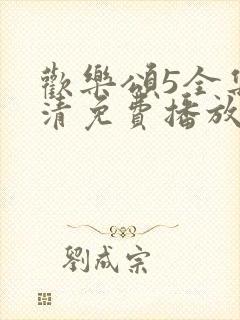 歡樂頌5全集
清免費播放
劉成宗